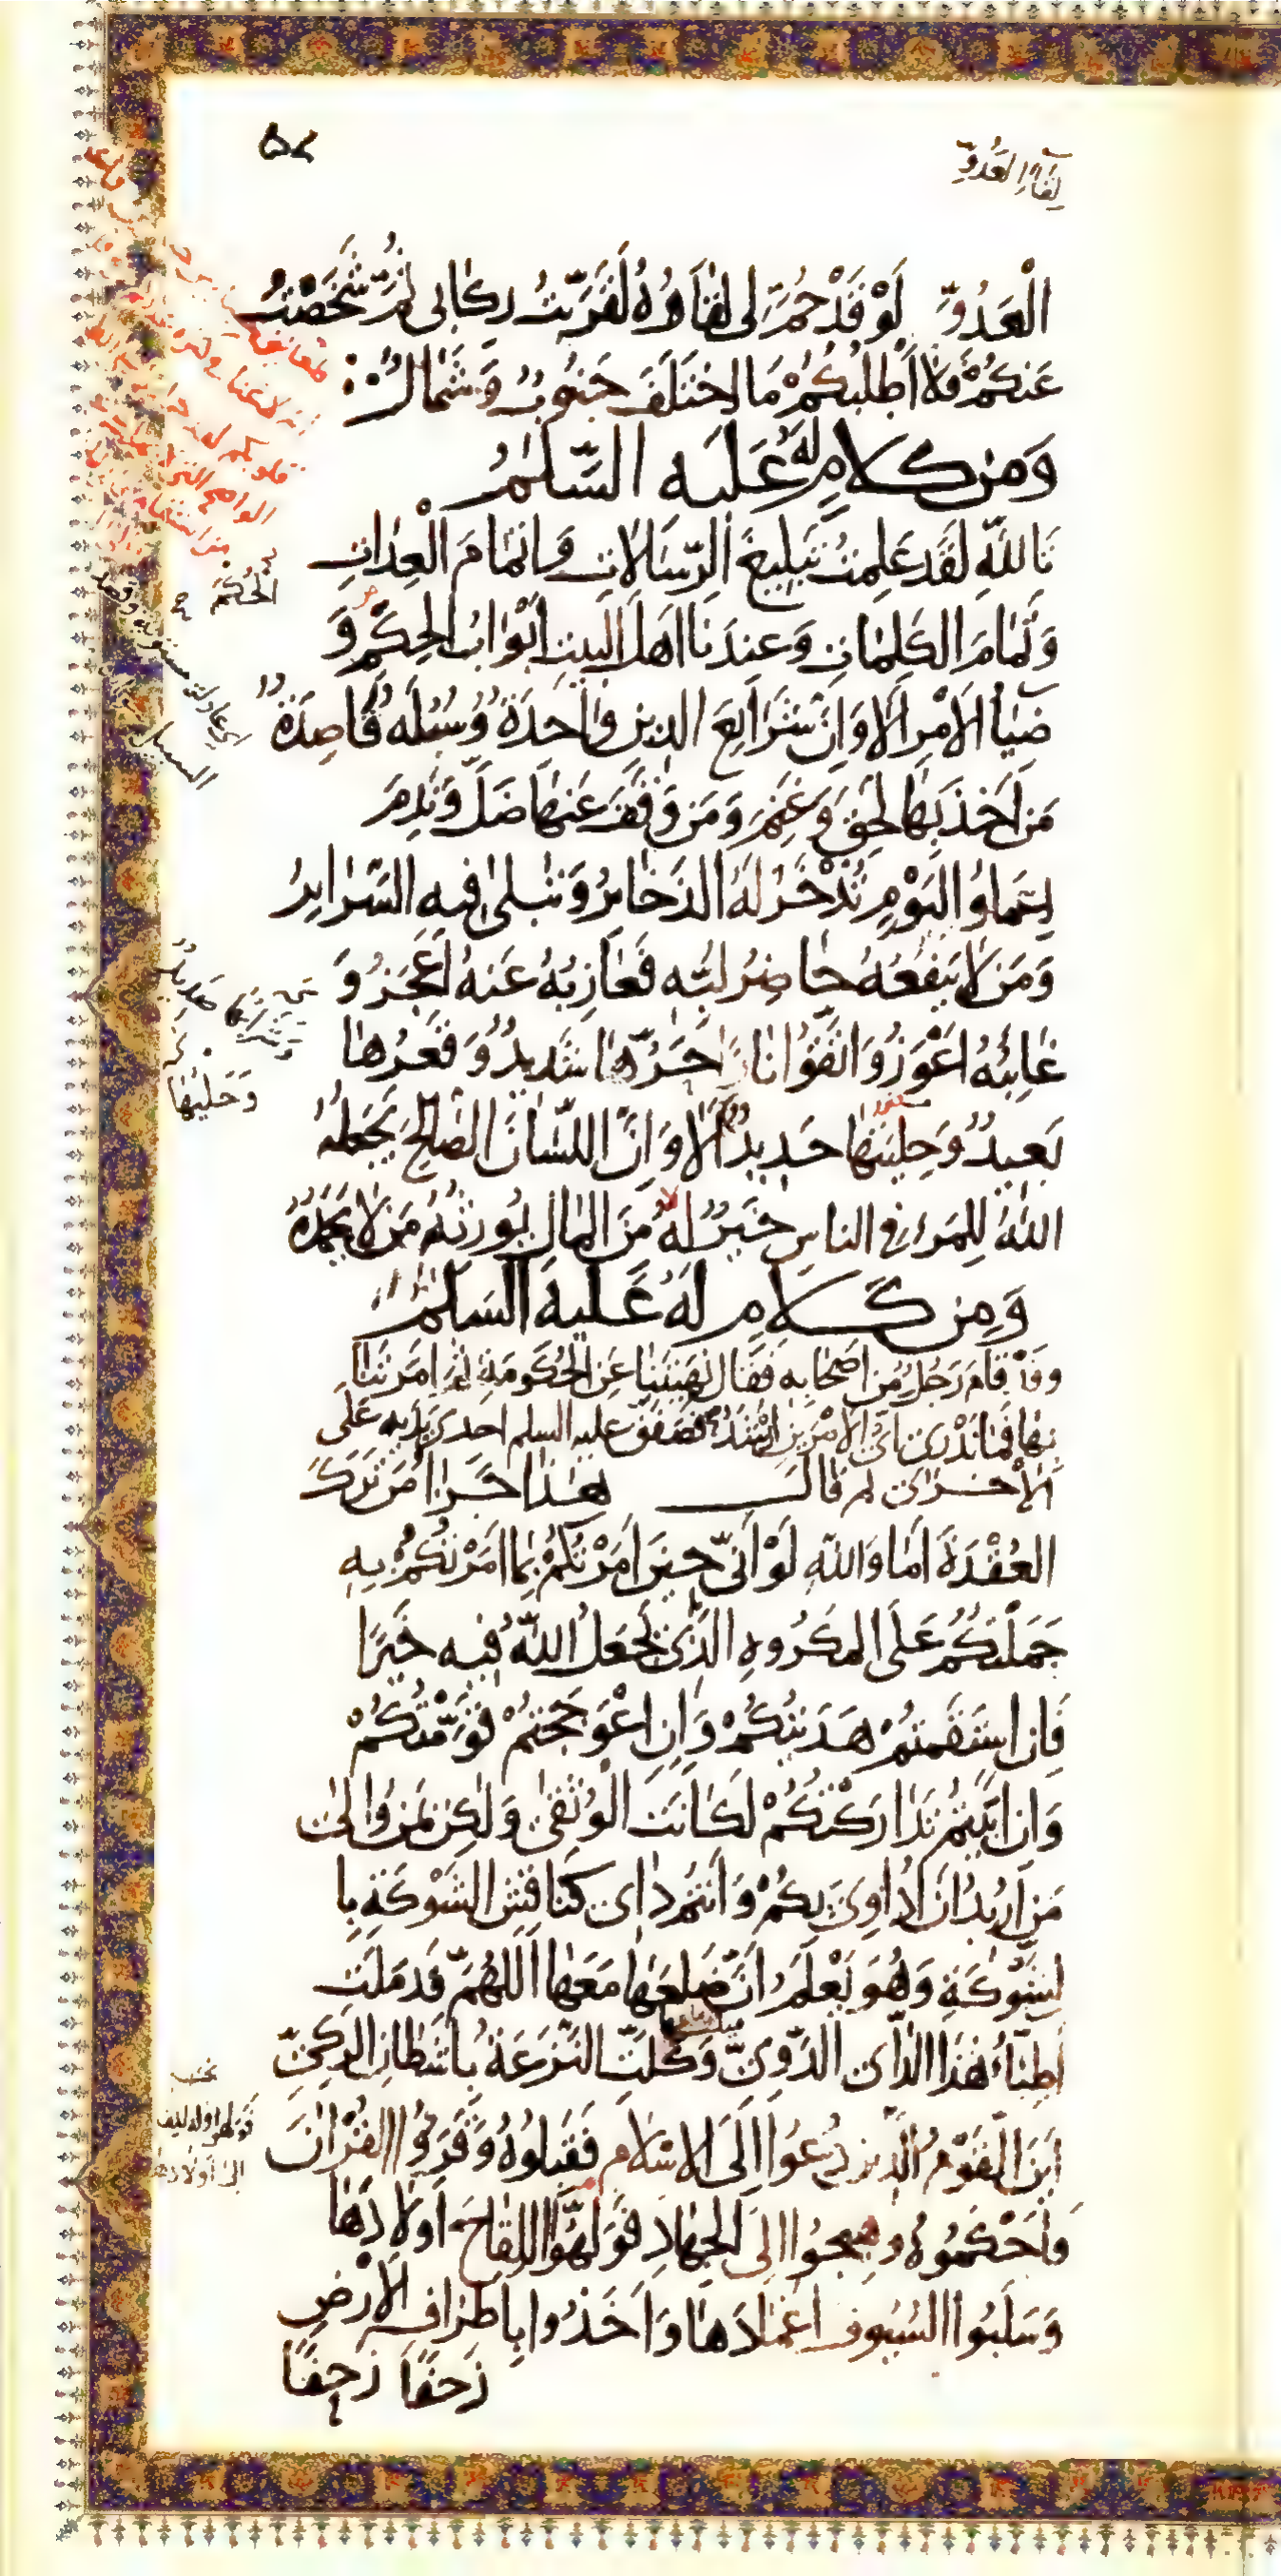 لِقَاءِ الْعَدُوِّ
۵۸
الْعَدُوِّ لَوْ قَدْ حُمَّ لِى لِقَاؤُهُ لَقَرَّبْتُ رِكَابِى ثُمَّ شَخَصْتُ
عَنْكُمْ فَلَا أَطْلُبُكُمْ مَا اخْتَلَفَ جَنُوبٌ وَشَمَالٌ
وَمِنْ كَلَامٍ لَهُ عَلَيْهِ السَّلَمُ
تَاللَّهِ لَقَدْ عَلِمْتُ تَبْلِيغَ الرِّسَالَاتِ وَاِتْمَامَ الْعِدَاتِ
وَتَمَامَ الْكَلِمَاتِ وَعِنْدَنَا اَهْلَ الْبَيْتِ اَبْوَابُ الْحِكَمِ وَ
ضِيَاءُ الْاَمْرِ اَلَا وَاِنَّ شَرَايِعَ الدِّينِ وَاحِدَةٌ وَسُبُلَهُ قَاصِدَةٌ
مَنْ اَخَذَ بِهَا لَحِقَ وَغَنِمَ وَمَنْ وَقَفَ عَنْهَا ضَلَّ وَنَدِمَ
اِعْمَلُوا لِيَوْمٍ تُذْخَرُ لَهُ الذَّخَايِرُ وَتُبْلَى فِيهِ السَّرَايِرُ
وَمَنْ لَا يَنْفَعُهُ حَاضِرُ لُبِّهِ فَعَازِبُهُ عَنْهُ اَعْجَزُ وَ
غَائِبُهُ اَعْوَزُ وَاتَّقُوا نَارًا حَرُّهَا شَدِيدٌ وَقَعْرُهَا
بَعِيدٌ وَحِلْيَتُهَا حَدِيدٌ اَلَا وَاِنَّ اللِّسَانَ الصَّالِحَ يَجْعَلُهُ
اللَّهُ لِلْمَرْءِ فِى النَّاسِ خَيْرٌ لَهُ مِنَ الْمَالِ يُورِثُهُ مَنْ لَا يَحْمَدُهُ
وَمِنْ كَلَامٍ لَهُ عَلَيْهِ السَّلَمُ
وَقَدْ قَامَ رَجُلٌ مِنْ اَصْحَابِهِ فَقَالَ نَهَيْتَنَا عَنِ الْحُكُومَةِ ثُمَّ اَمَرْتَنَا
بِهَا فَمَا نَدْرِى اَىُّ الْاَمْرَيْنِ اَرْشَدُ فَصَفَقَ عليه السلم احدى يَدَيْهِ عَلَى
الْاُخْرَى ثم قَالَ هَذَا جَزَاءُ مَنْ تَرَكَ
الْعُقْدَةَ اَمَا وَاللَّهِ لَوْ اَنِّى حِينَ اَمَرْتُكُمْ بِمَا اَمَرْتُكُمْ بِهِ
حَمَلْتُكُمْ عَلَى الْمَكْرُوهِ الَّذِى يَجْعَلُ اللَّهُ فِيهِ خَيْرًا
فَاِنِ اسْتَقَمْتُمْ هَدَيْتُكُمْ وَاِنِ اعْوَجَجْتُمْ قَوَّمْتُكُمْ
وَاِنْ اَبَيْتُمْ تَدَارَكْتُكُمْ لَكَانَتِ الْوُثْقَى وَلَكِنْ بِمَنْ وَاِلَى
مَنْ اُرِيدُ اَنْ اُدَاوِىَ بِكُمْ وَاَنْتُمْ دَاءِى كَنَاقِشِ الشَّوْكَةِ بِا
لشَّوْكَةِ وَهُوَ يَعْلَمُ اَنَّ ضَلْعَهَا مَعَهَا اَللَّهُمَّ قَدْ مَلَّتْ
اَطِبَّاءُ هَذَا الدَّاءِ الدَّوِىِّ وَكَلَّتِ النَّزَعَةُ بِاَشْطَانِ الرَّكِىِّ
اَيْنَ الْقَوْمُ الَّذِينَ دُعُوا اِلَى الْاِسْلَامِ فَقَبِلُوهُ وَقَرَؤُا الْقُرْانَ
فَاَحْكَمُوهُ وَهِيجُوا اِلَى الْجِهَادِ فَوَلَّهُوا اللِّقَاحَ اَوْلَادَهَا
وَسَلَبُوا السُّيُوفَ اَغْمَادَهَا وَاَخَذُوا بِاَطْرَافِ الْاَرْضِ
زَحْفًا زَحْفًا
الْحُكْمِ
وَحِلْيَتُهَا